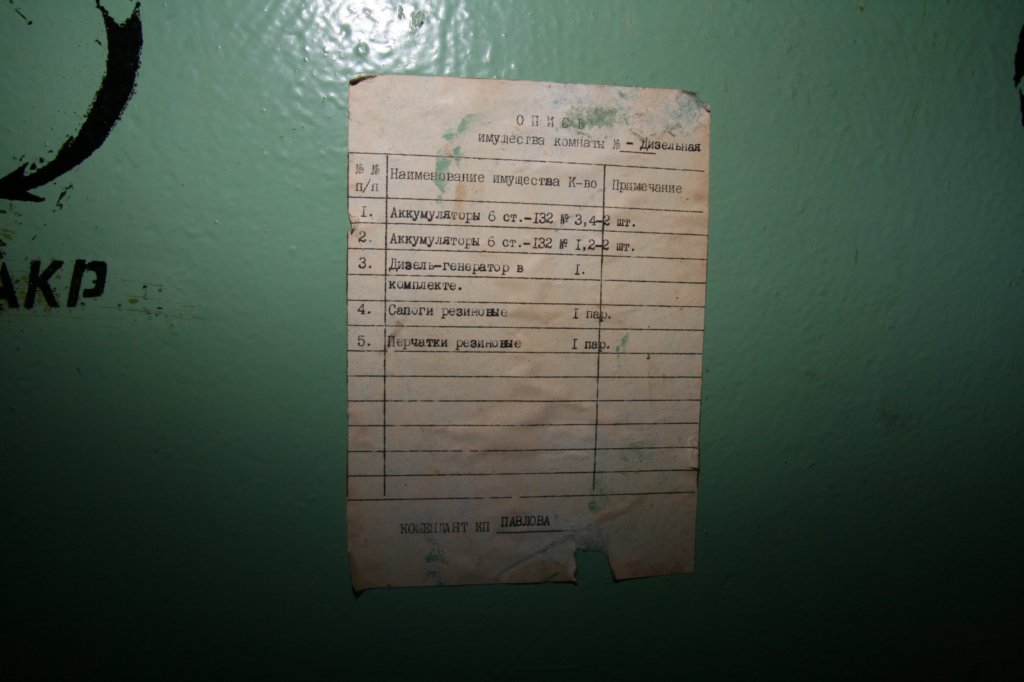 ОПИСЬ
имущества комнаты № - Дизельная
№ № п/п Наименование имущества К-во Примечание
1. Аккумуляторы 6 ст.-132 № 3,4-2 шт.
2. Аккумуляторы 6 ст.-132 № 1,2-2 шт.
3. Дизель-генератор в I.
комплекте.
4. Сапоги резиновые I пар.
5. Перчатки резиновые I пар.
КОМЕНДАНТ КП ПАВЛОВА
АКР